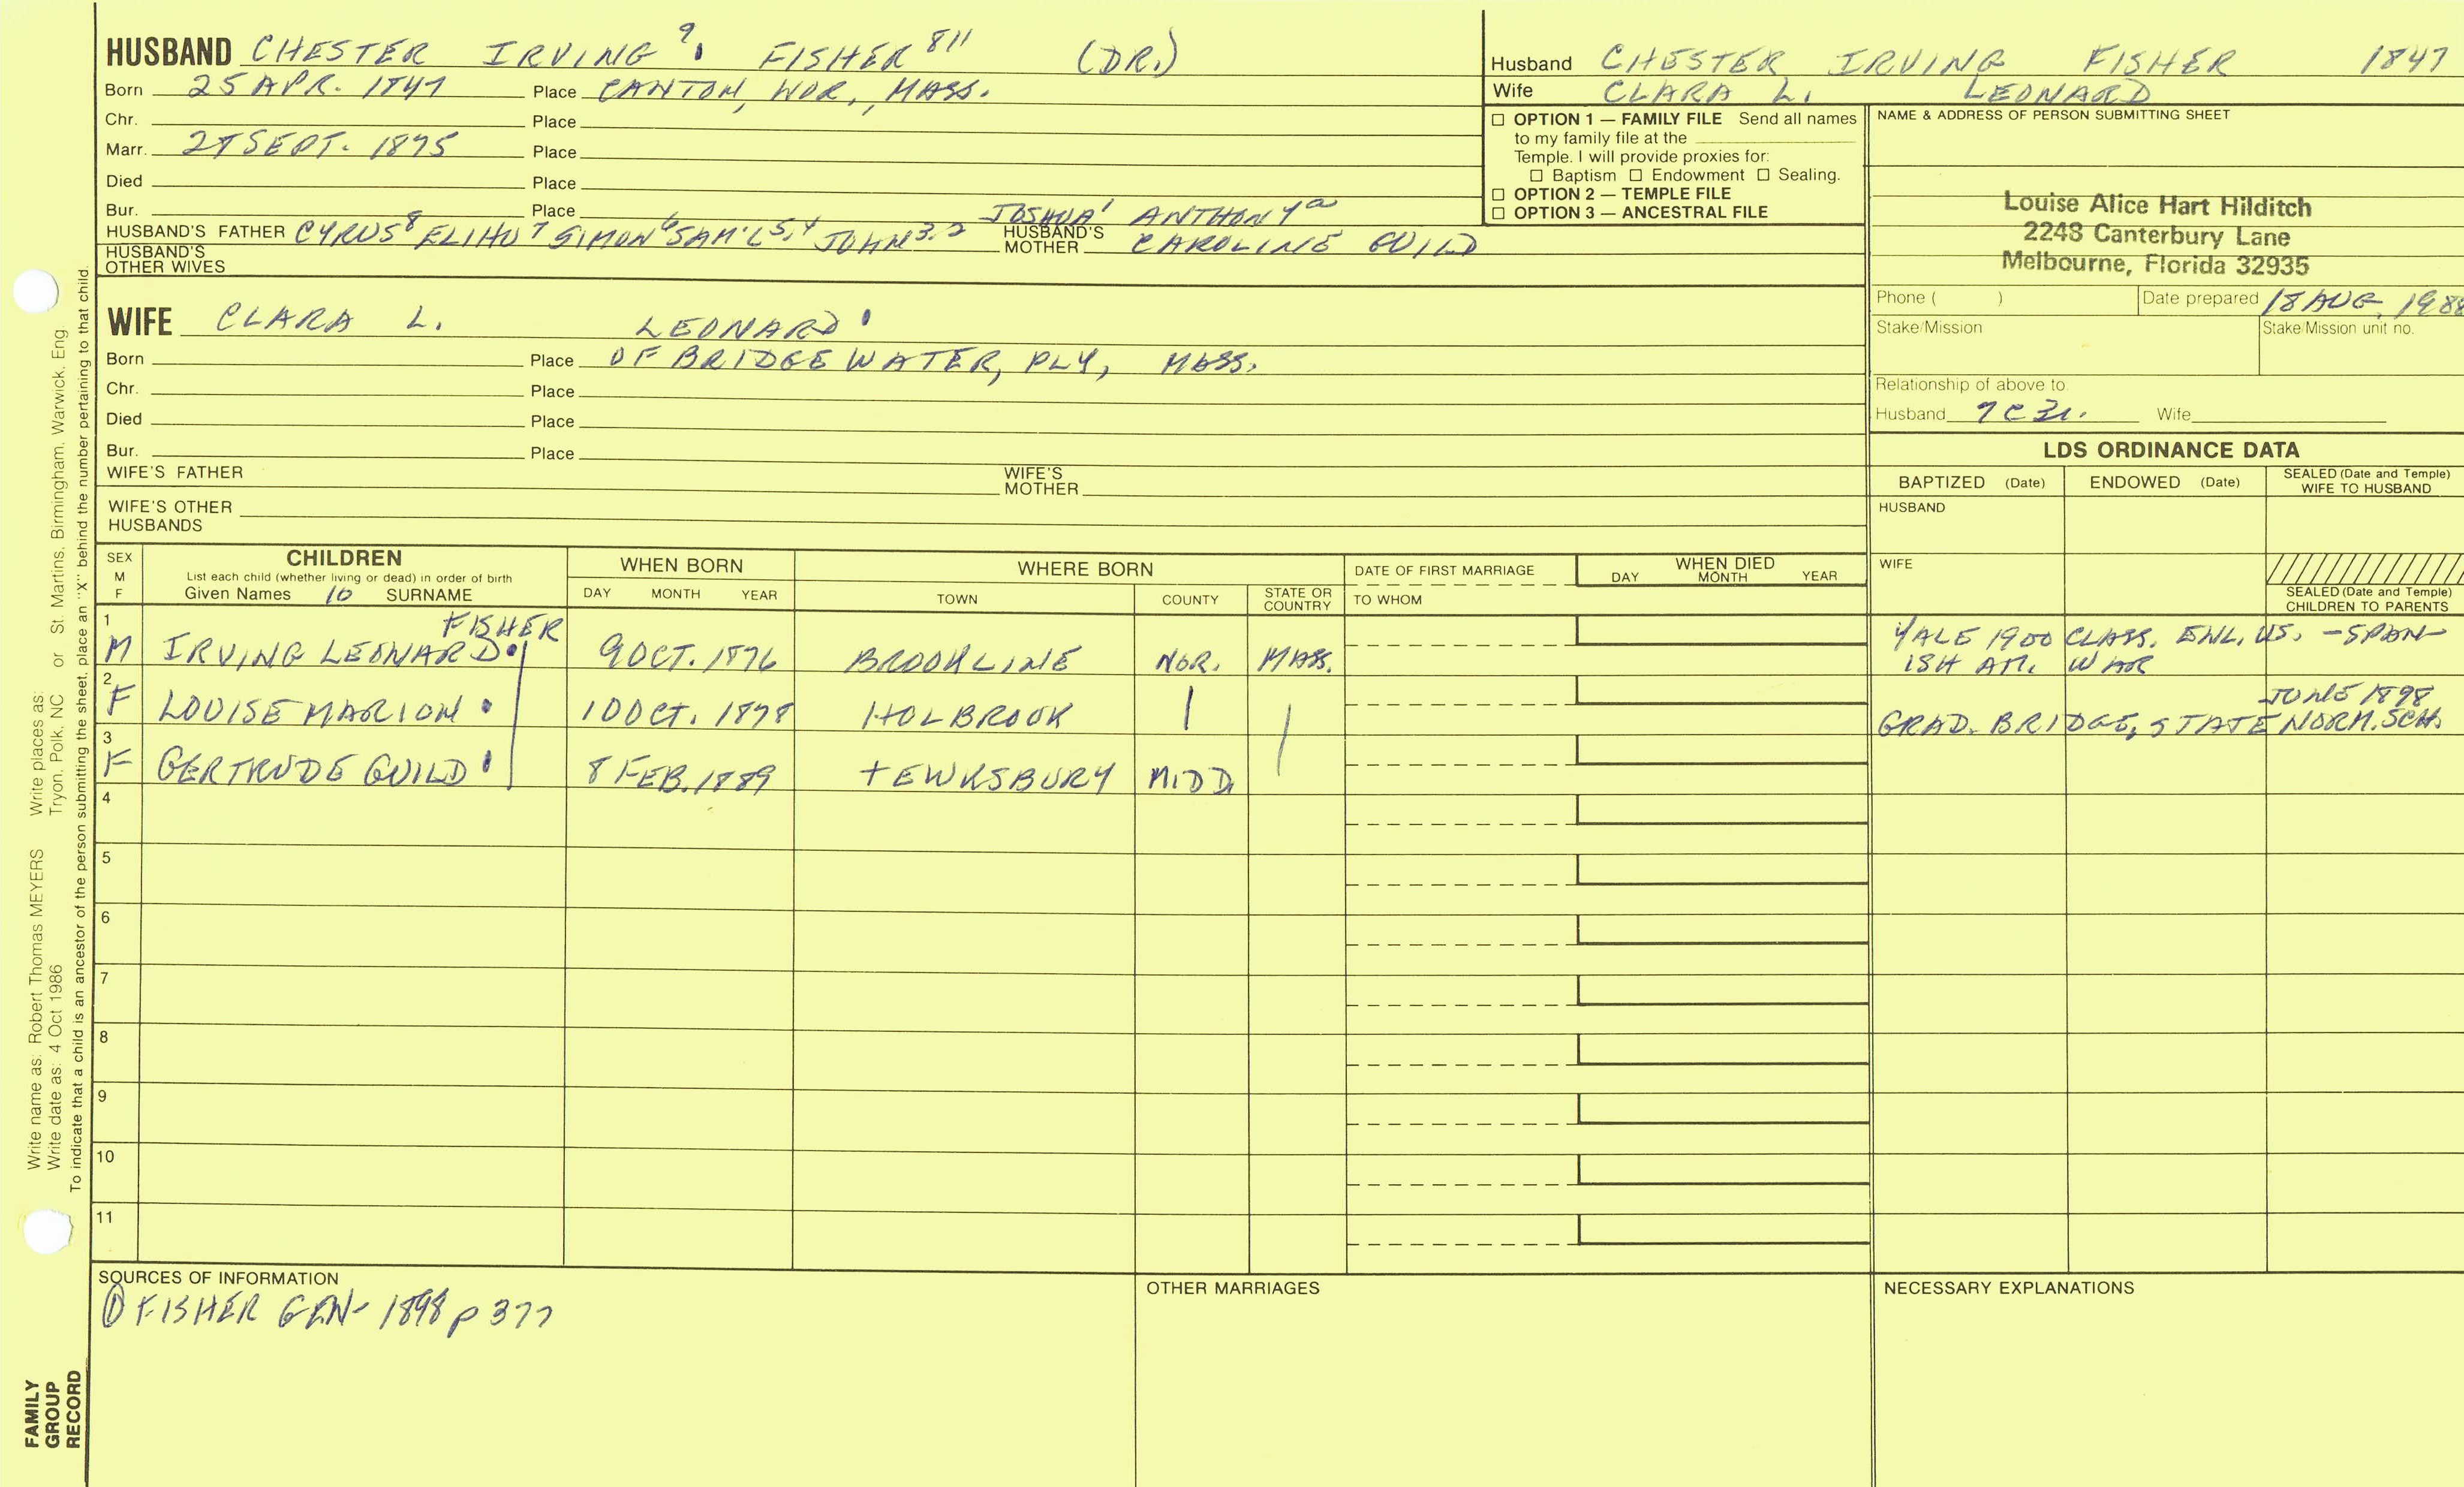 HUSBAND CHESTER IRVING 9. FISHER 811 (DR.)
Born 25 APR. 1847 Place CANTON, NOR., MASS.
Chr. Place
Marr. 27 SEPT. 1875 Place
Died Place
Bur. Place JOSHUA 1 ANTHONY a
HUSBAND'S FATHER CYRUS 8 ELIHU 7 SIMON 6 SAM'L 5,4 JOHN 3,2 HUSBAND'S MOTHER CAROLINE GUILD
HUSBAND'S OTHER WIVES
WIFE CLARA L. LEONARD
Born Place OF BRIDGEWATER, PLY, MASS.
Chr. Place
Died Place
Bur. Place
WIFE'S FATHER WIFE'S MOTHER
WIFE'S OTHER HUSBANDS
Husband CHESTER IRVING FISHER 1847
Wife CLARA L. LEONARD
☐ OPTION 1 — FAMILY FILE Send all names
to my family file at the
Temple. I will provide proxies for:
☐ Baptism ☐ Endowment ☐ Sealing.
☐ OPTION 2 — TEMPLE FILE
☐ OPTION 3 — ANCESTRAL FILE
NAME & ADDRESS OF PERSON SUBMITTING SHEET
Louise Alice Hart Hilditch
2248 Canterbury Lane
Melbourne, Florida 32935
Phone ( ) Date prepared 18 AUG. 1988
Stake/Mission Stake/Mission unit no.
Relationship of above to:
Husband 7C3r. Wife
LDS ORDINANCE DATA
BAPTIZED (Date) ENDOWED (Date) SEALED (Date and Temple) WIFE TO HUSBAND
HUSBAND
WIFE
SEALED (Date and Temple) CHILDREN TO PARENTS
SEX M F CHILDREN WHEN BORN WHERE BORN DATE OF FIRST MARRIAGE WHEN DIED
List each child (whether living or dead) in order of birth
Given Names 10 SURNAME DAY MONTH YEAR TOWN COUNTY STATE OR COUNTRY TO WHOM DAY MONTH YEAR
1 FISHER
M IRVING LEONARD 9 OCT. 1876 BROOKLINE NOR. MASS. YALE 1900 CLASS. ENL. US. - SPAN-
ISH AM. WAR
2 JUNE 1898
F LOUISE MARION 10 OCT. 1878 HOLBROOK GRAD. BRIDGE, STATE NORM. SCH.
3
F GERTRUDE GUILD 8 FEB. 1889 TEWKSBURY MIDD.
4
5
6
7
8
9
10
11
SOURCES OF INFORMATION
① FISHER GEN- 1898 p 377
OTHER MARRIAGES
NECESSARY EXPLANATIONS
Write name as: Robert Thomas MEYERS Write places as:
Write date as: 4 Oct 1986 Tryon, Polk, NC or St. Martins, Birmingham, Warwick, Eng
To indicate that a child is an ancestor of the person submitting the sheet, place an "X" behind the number pertaining to that child.
FAMILY
GROUP
RECORD